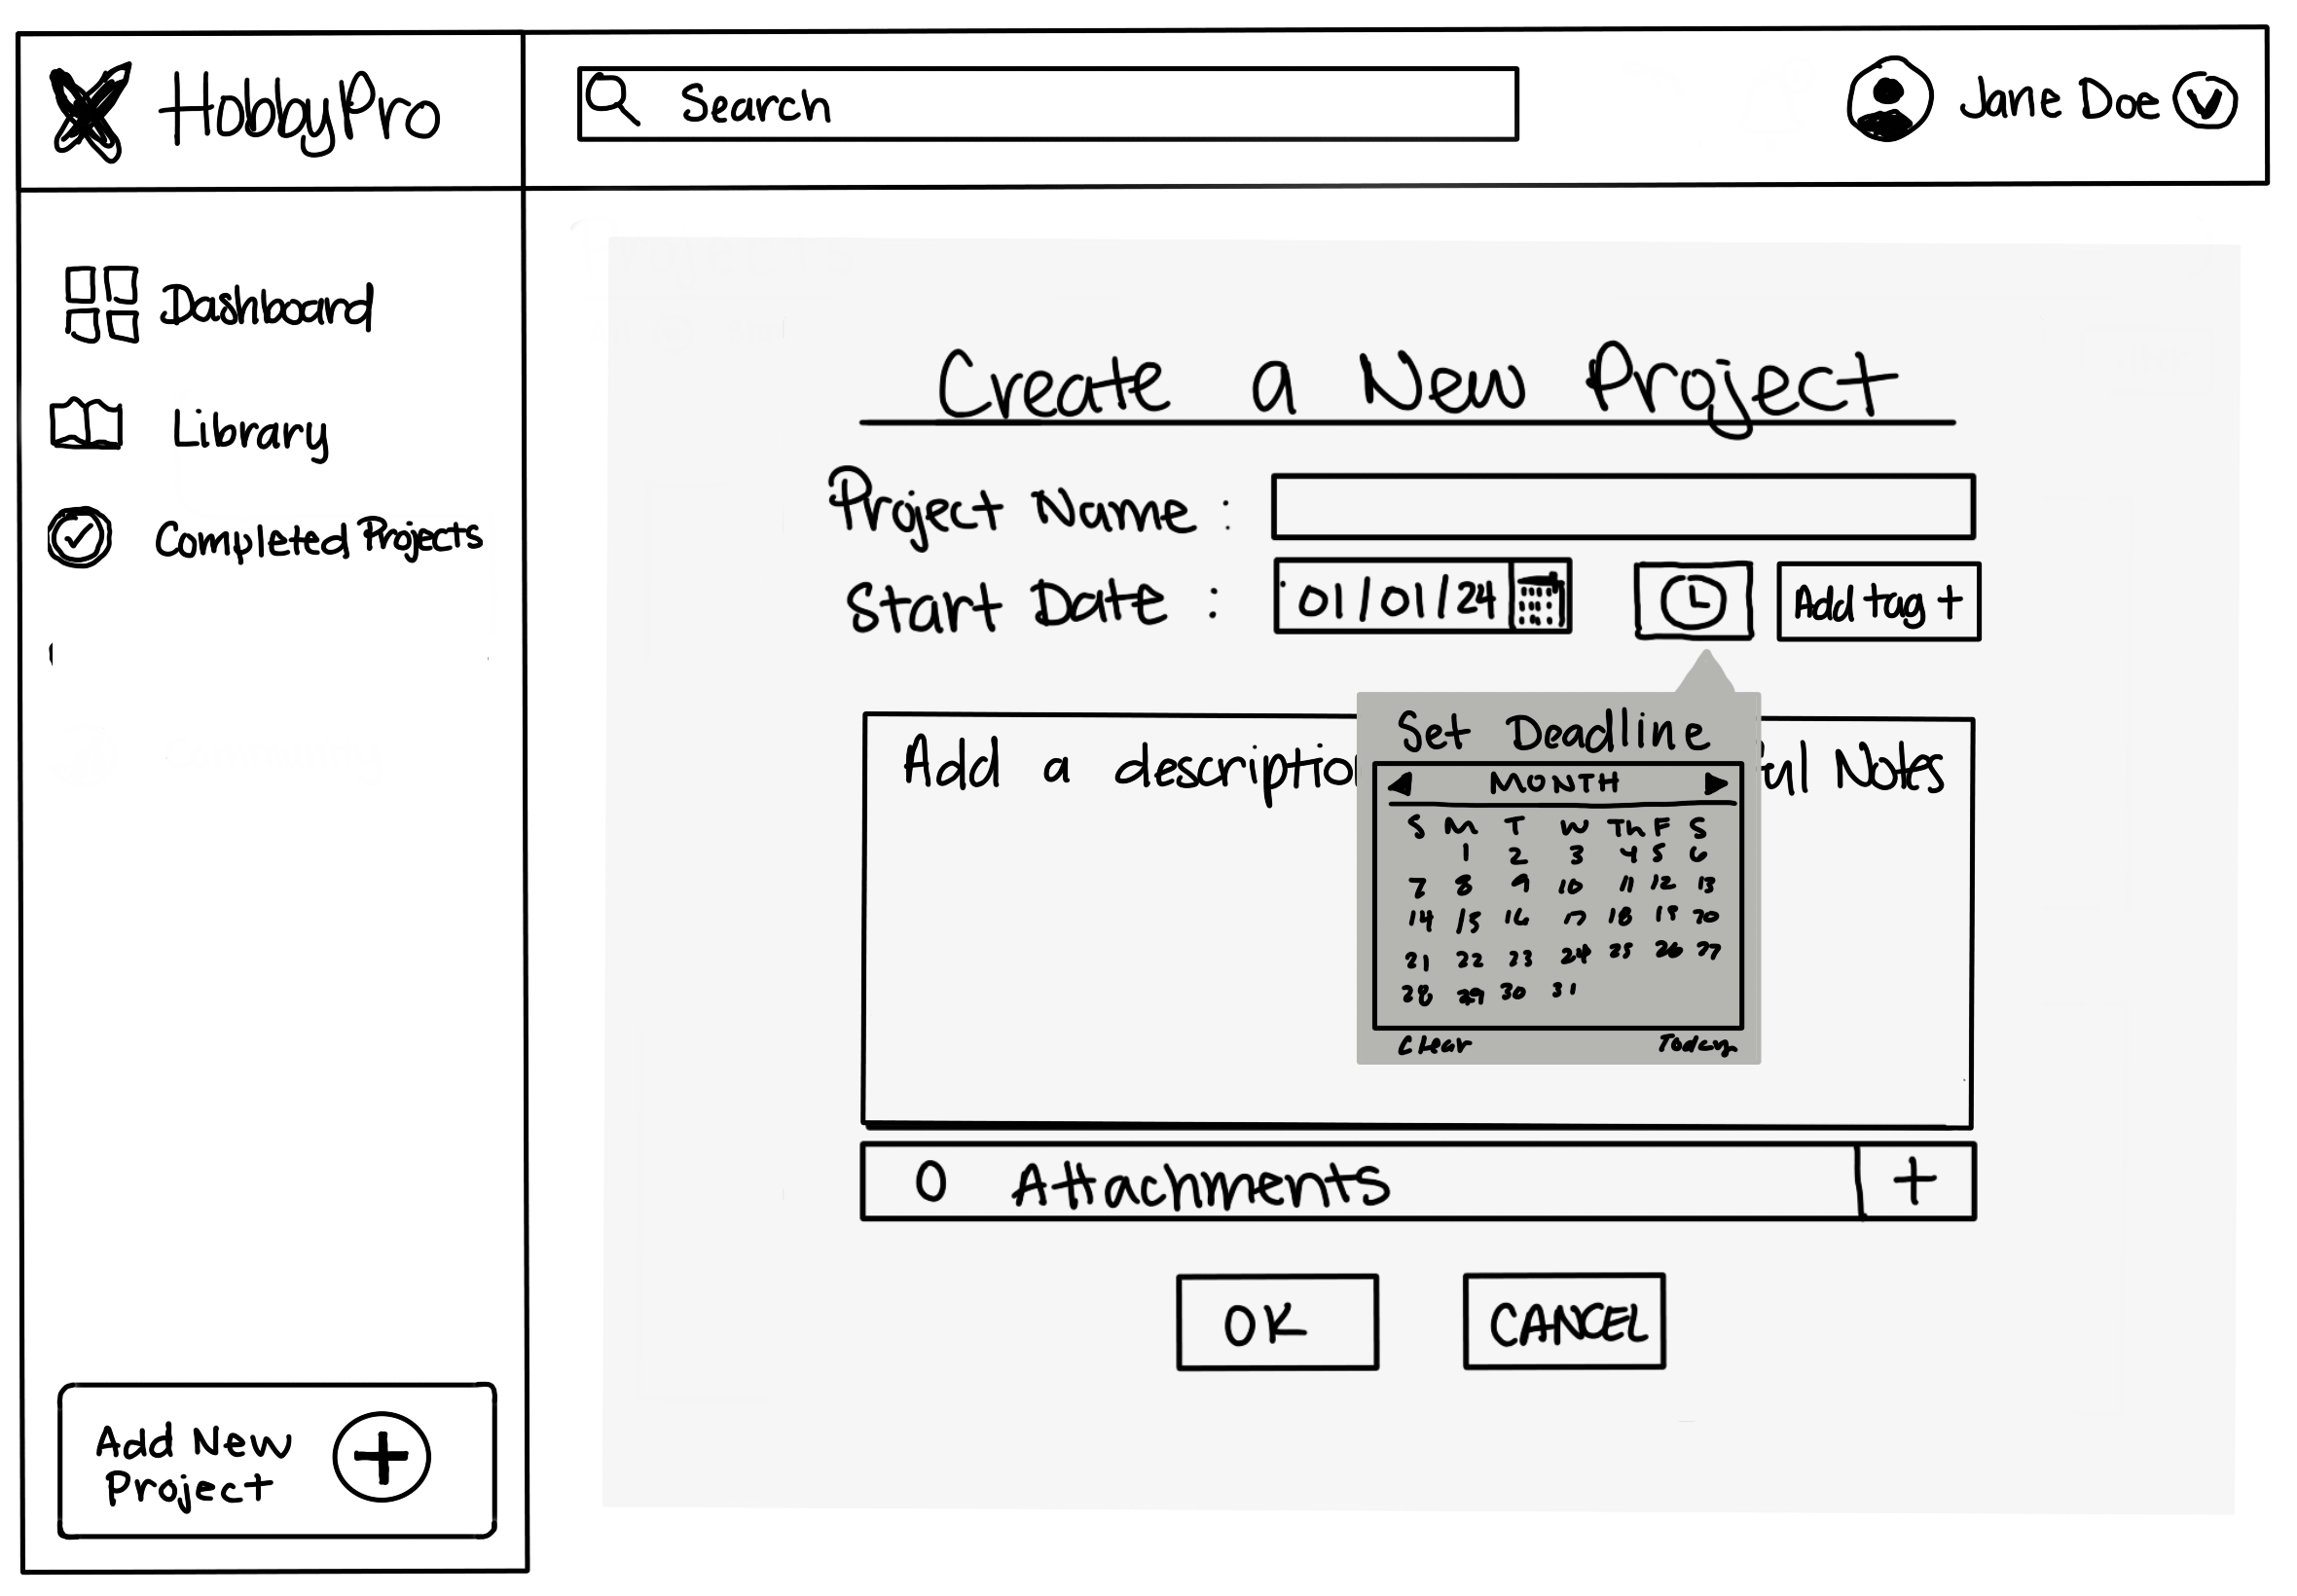 HobbyPro
Search
Jane Doe
Dashboard
Library
Completed Projects
Add New
Project
Create a New Project
Project Name :
Start Date : 01/01/24
Add tag +
Add a description
Notes
Set Deadline
MONTH
S M T W Th F S
1 2 3 4 5 6
7 8 9 10 11 12 13
14 15 16 17 18 19 20
21 22 23 24 25 26 27
28 29 30 31
Clear Today
0 Attachments +
OK
CANCEL